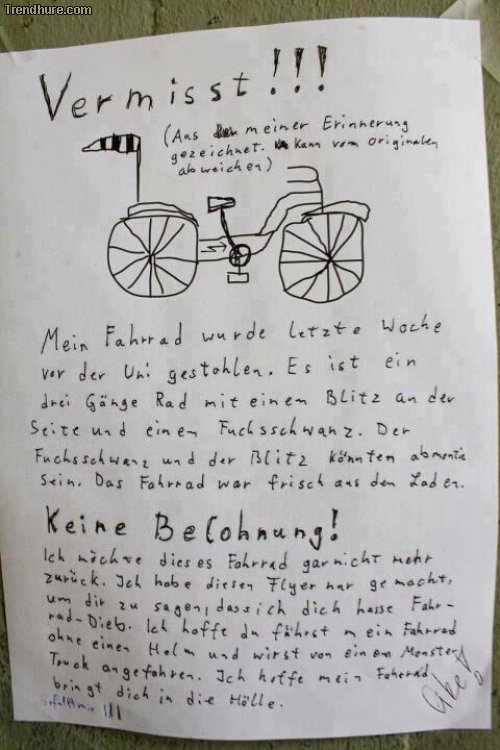 Trendhure.com
Vermisst!!!
(Aus meiner Erinnerung
gezeichnet. Kann vom originalen
abweichen)
Mein Fahrrad wurde letzte Woche
vor der Uni gestohlen. Es ist ein
drei Gänge Rad mit einem Blitz an der
Seite und einen Fuchsschwanz. Der
Fuchsschwanz und der Blitz könnten abmontie
sein. Das Fahrrad war frisch aus den Laden.
Keine Belohnung!
Ich möchte dieses Fahrrad garnicht mehr
zurück. Ich habe diesen Flyer nur gemacht,
um dir zu sagen, dass ich dich hasse Fahr-
rad-Dieb. Ich hoffe du fährst mein Fahrrad
ohne einen Helm und wirst von einem Monster
Truck angefahren. Ich hoffe mein Fahrrad
bringt dich in die Hölle.